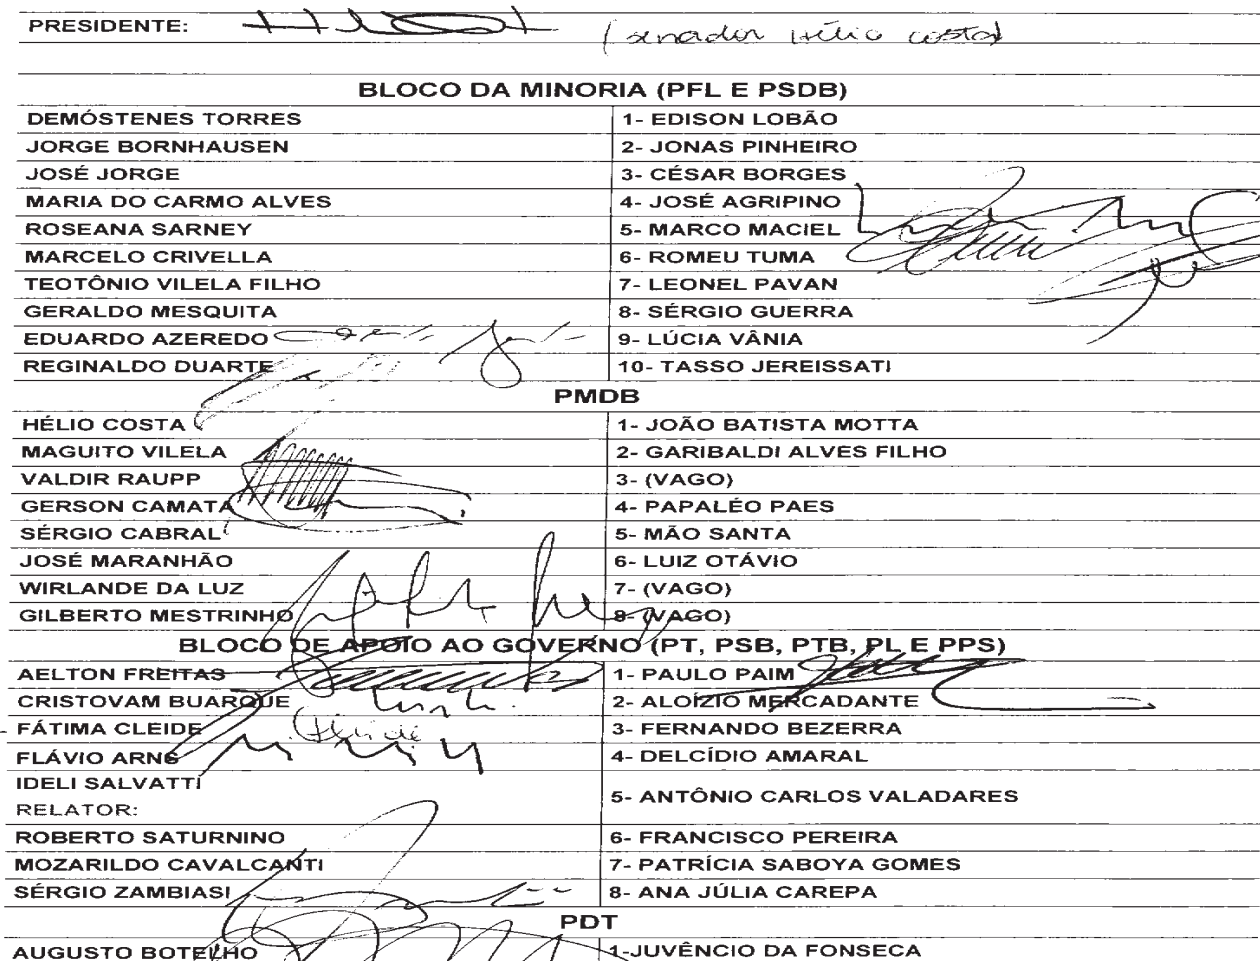 PRESIDENTE: (senador Hélio Costa)
BLOCO DA MINORIA (PFL E PSDB)
DEMÓSTENES TORRES 1- EDISON LOBÃO
JORGE BORNHAUSEN 2- JONAS PINHEIRO
JOSÉ JORGE 3- CÉSAR BORGES
MARIA DO CARMO ALVES 4- JOSÉ AGRIPINO
ROSEANA SARNEY 5- MARCO MACIEL
MARCELO CRIVELLA 6- ROMEU TUMA
TEOTÔNIO VILELA FILHO 7- LEONEL PAVAN
GERALDO MESQUITA 8- SÉRGIO GUERRA
EDUARDO AZEREDO 9- LÚCIA VÂNIA
REGINALDO DUARTE 10- TASSO JEREISSATI
PMDB
HÉLIO COSTA 1- JOÃO BATISTA MOTTA
MAGUITO VILELA 2- GARIBALDI ALVES FILHO
VALDIR RAUPP 3- (VAGO)
GERSON CAMATA 4- PAPALÉO PAES
SÉRGIO CABRAL 5- MÃO SANTA
JOSÉ MARANHÃO 6- LUIZ OTÁVIO
WIRLANDE DA LUZ 7- (VAGO)
GILBERTO MESTRINHO 8- (VAGO)
BLOCO DE APOIO AO GOVERNO (PT, PSB, PTB, PL E PPS)
AELTON FREITAS 1- PAULO PAIM
CRISTOVAM BUARQUE 2- ALOÍZIO MERCADANTE
FÁTIMA CLEIDE 3- FERNANDO BEZERRA
FLÁVIO ARNS 4- DELCÍDIO AMARAL
IDELI SALVATTI
RELATOR: 5- ANTÔNIO CARLOS VALADARES
ROBERTO SATURNINO 6- FRANCISCO PEREIRA
MOZARILDO CAVALCANTI 7- PATRÍCIA SABOYA GOMES
SÉRGIO ZAMBIASI 8- ANA JÚLIA CAREPA
PDT
AUGUSTO BOTELHO 1-JUVÊNCIO DA FONSECA